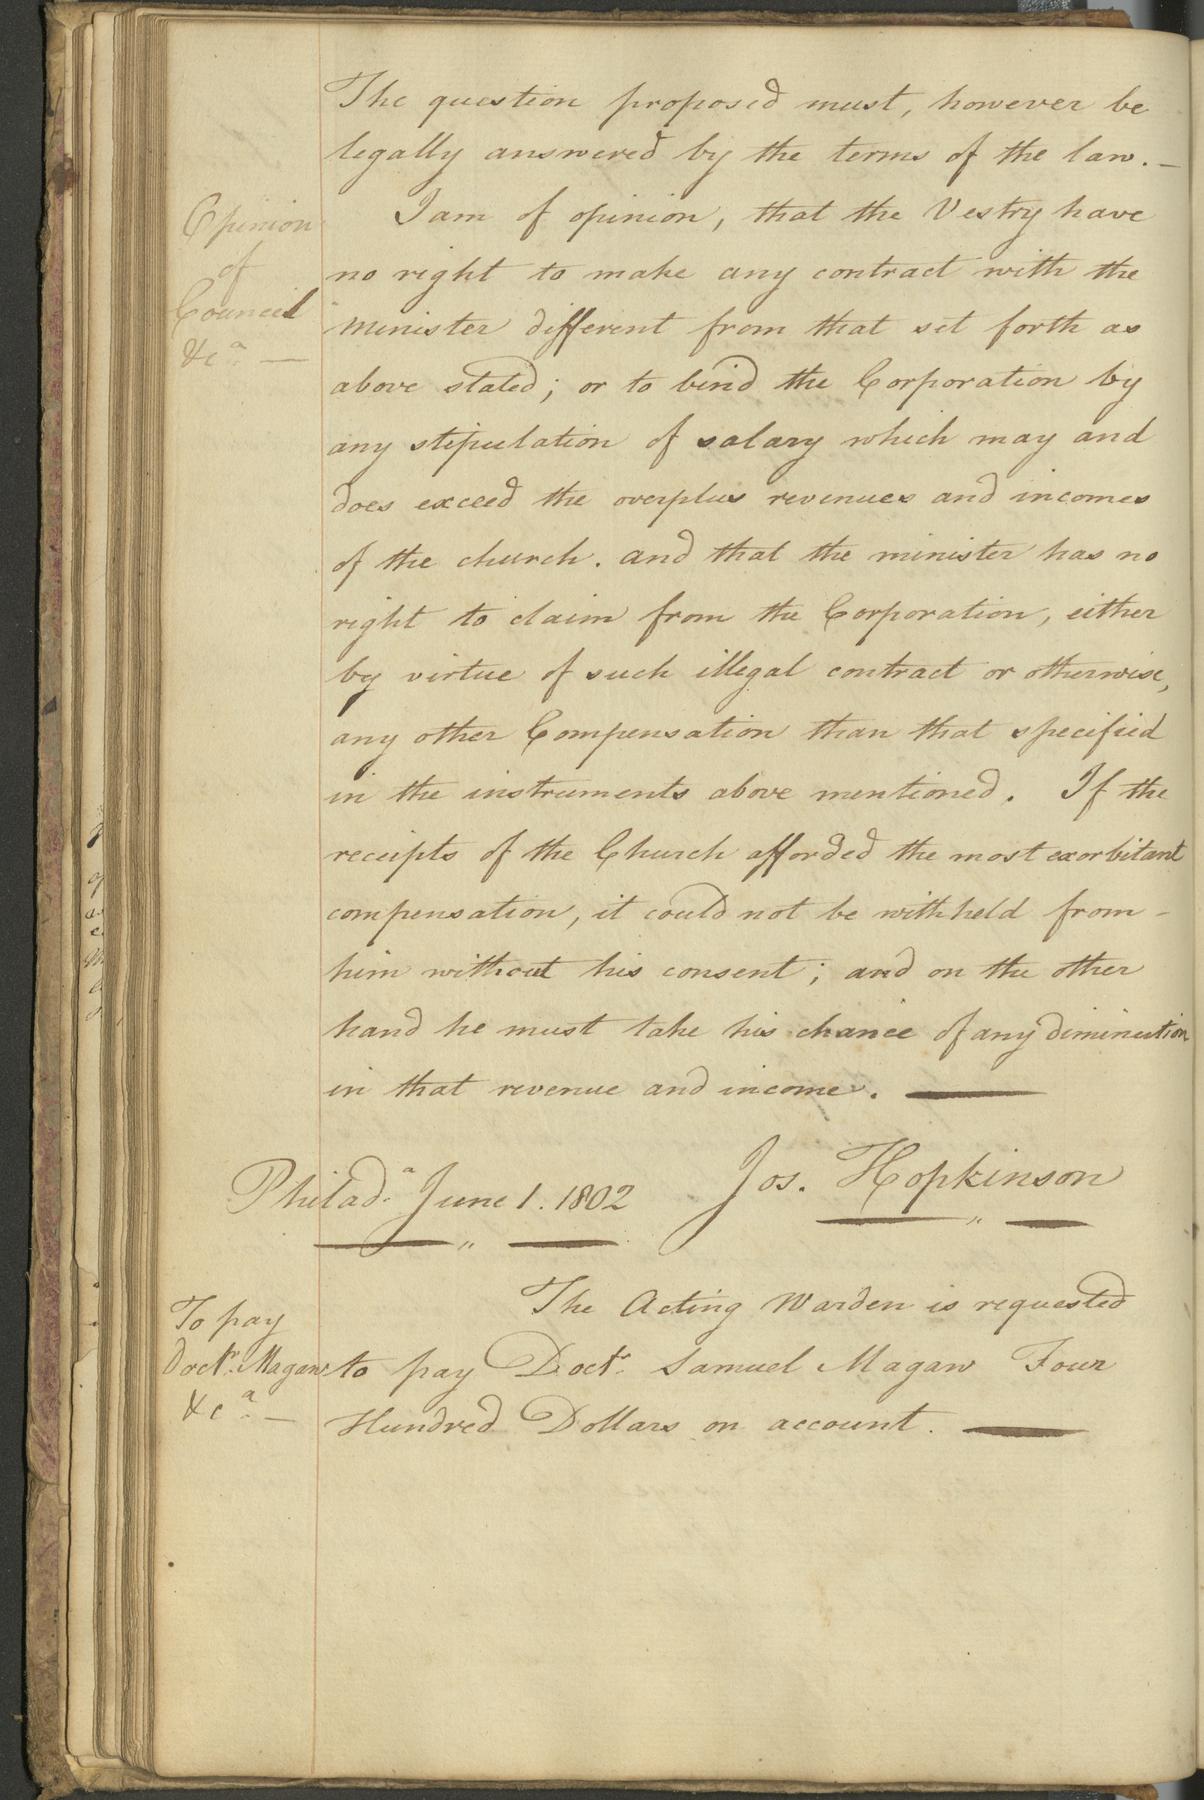 The question proposed must, however be
legally answered by the terms of the law. —
Opinion
of
Council
&c.ª —
I am of opinion, that the Vestry have
no right to make any contract with the
minister different from that set forth as
above stated; or to bind the Corporation by
any stipulation of salary which may and
does exceed the overplus revenues and incomes
of the church. and that the minister has no
right to claim from the Corporation, either
by virtue of such illegal contract or otherwise,
any other Compensation than that specified
in the instruments above mentioned. If the
receipts of the Church afforded the most exorbitant
compensation, it could not be withheld from -
him without his consent; and on the other
hand he must take his chance of any diminution
in that revenue and income. —
Philad.ª June 1. 1802 Jos. Hopkinson
To pay
Doct.r Magaw
&c.ª —
The Acting Warden is requested
to pay Doct.r Samuel Magaw Four
Hundred Dollars on account. —